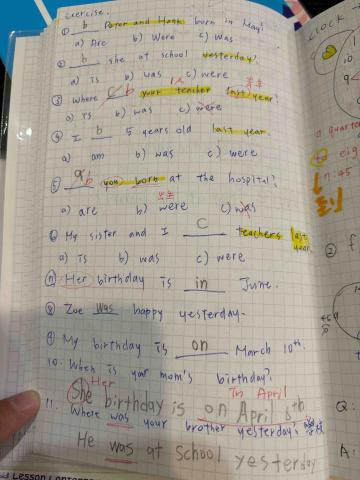 Exercise.
① b Peter and Hank born in May?
a) Are b) Were c) Was
② b she at school yesterday?
a) Is b) was c) were
③ Where b your teacher last year?
a) Is b) was c) were
④ I b 5 years old last year.
a) am b) was c) were
⑤ b you born at the hospital?
出生
a) are b) were c) was
⑥ My sister and I C teachers last year.
a) is b) was c) were
⑦ Her birthday is in June.
⑧ Zoe was happy yesterday.
⑨ My birthday is on March 10th.
10. When is your mom's birthday?
Her In April
She birthday is on April 8th
11. Where was your brother yesterday?
He was at School yesterday
CLOCK
a quarter
Q:
A:
Lesson